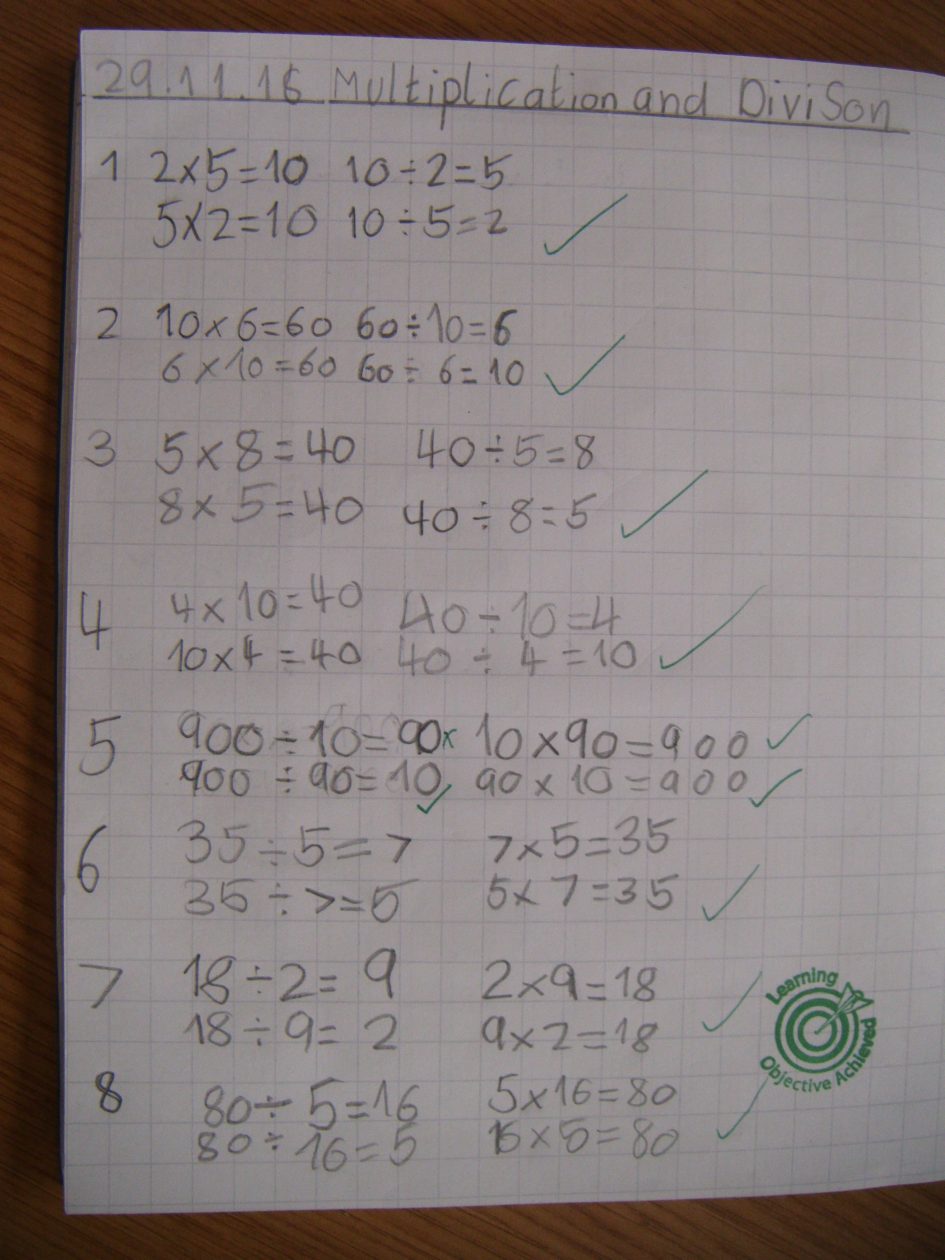 29.11.16 Multiplication and Divison
1 2×5=10 10÷2=5
5×2=10 10÷5=2
2 10×6=60 60÷10=6
6×10=60 60÷6=10
3 5×8=40 40÷5=8
8×5=40 40÷8=5
4 4×10=40 40÷10=4
10×4=40 40÷4=10
5 900÷10=90 10×90=900
900÷90=10 90×10=900
6 35÷5=7 7×5=35
35÷7=5 5×7=35
7 18÷2=9 2×9=18
18÷9=2 9×2=18
Learning
Objective Achieved
8 80÷5=16 5×16=80
80÷16=5 16×5=80